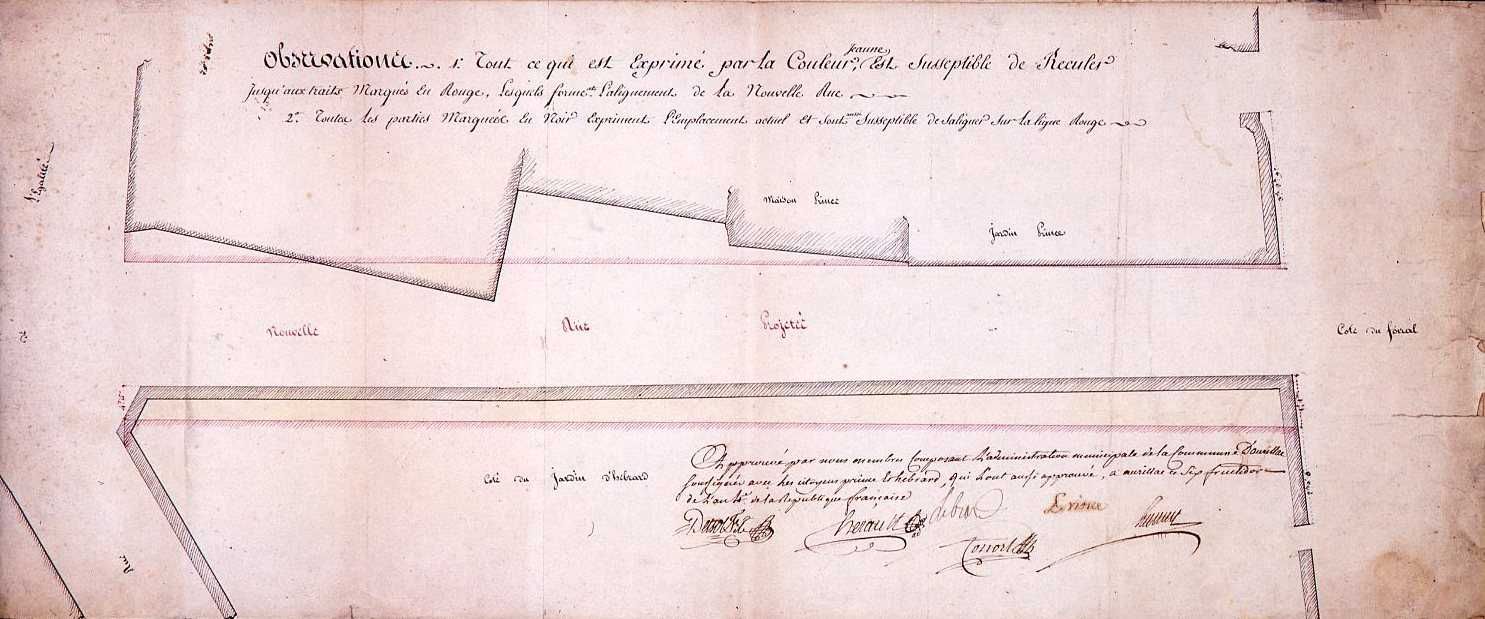 Observations. 1.º Tout ce qui est Exprimé par la Couleur Jeaune, Est Susseptible de Reculer
Jusqu'aux traits Marqués En Rouge, Lesquels forment L'alignement de la Nouvelle Rue
2.º Toutes les parties Marquées En Noir Expriment L'Emplacement actuel Et sont Susseptible de Saligner Sur la ligne Rouge
L'Egalité
Maison Prince
Jardin Prince
Nouvelle Rue Projetée
Coté du foirail
Coté du Jardin D'hebrard
Approuvé par nous membres Composant L'administration municipale de la Commune D'aurillac
Soussignés avec Les citoyens prince & hebrard, qui L'ont aussi approuvé, a aurillac ce Sep fructidor
de L'an 4e. de la Republique française
Rue